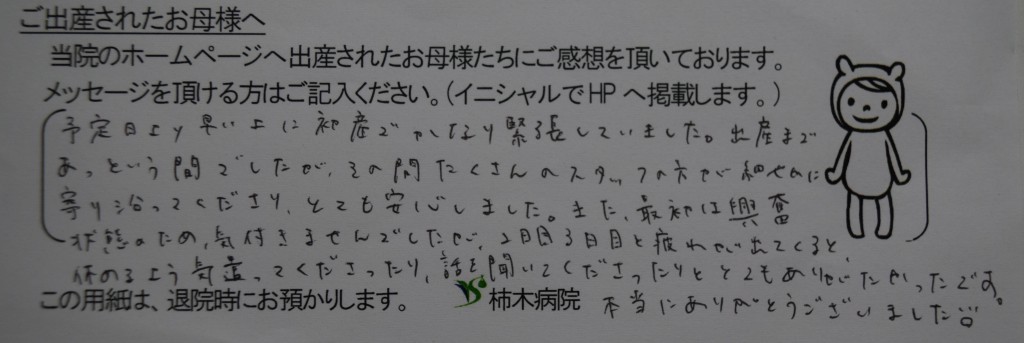 ご出産されたお母様へ
当院のホームページへ出産されたお母様たちにご感想を頂いております。
メッセージを頂ける方はご記入ください。(イニシャルでHPへ掲載します。)
予定日より早い上に初産でかなり緊張していました。出産まで
あっという間でしたが、その間たくさんのスタッフの方が細やかに
寄り沿ってくださり、とても安心しました。また、最初は興奮
状態のため、気付きませんでしたが、2日目3日目と疲れが出てくると、
休めるよう気遣ってくださったり、話を聞いてくださったりととてもありがたかったです。
本当にありがとうございました
この用紙は、退院時にお預かりします。 柿木病院